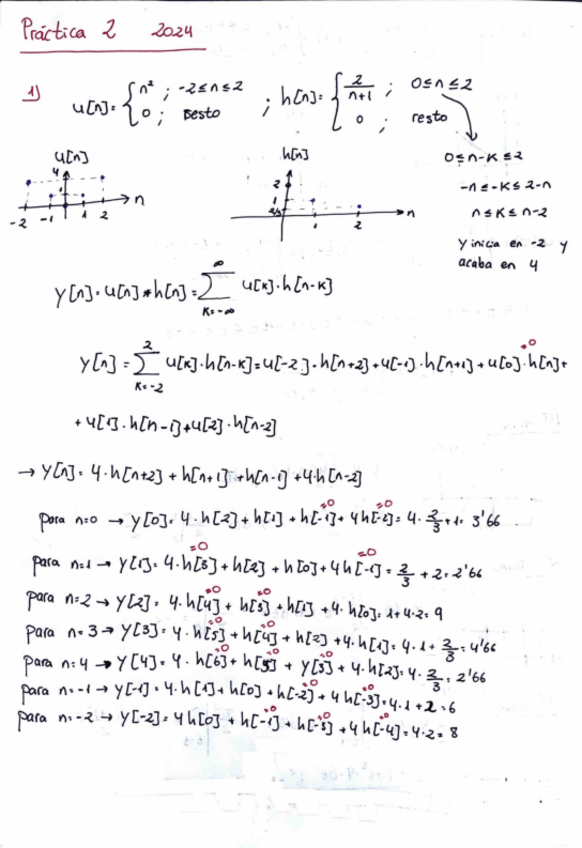 Práctica 2 2024
1) u[n]= { n² ; -2≤n≤2 ; h[n]= { 2/(n+1) ; 0≤n≤2
0 ; Resto 0 ; resto
0≤n-k≤2
-n≤-k≤2-n
n≤k≤n-2
y inicia en -2 y
acaba en 4
u[n] h[n]
4 1 n -2 -1 1 2
2 1 2/3 n 1 2
y[n]=u[n]*h[n]=∑ k=-∞ ∞ u[k]·h[n-k]
y[n]=∑ k=-2 2 u[k]·h[n-k]=u[-2]·h[n+2]+u[-1]·h[n+1]+u[0]·h[n]+ =0
+u[1]·h[n-1]+u[2]·h[n-2]
→ y[n]= 4·h[n+2]+h[n+1]+h[n-1]+4·h[n-2]
para n=0 → y[0]= 4·h[2]+h[1]+h[-1]=0+4h[-2]=0=4·2/3+1= 3'66
para n=1 → y[1]= 4·h[3]=0+h[2]+h[0]+4h[-1]=0=2/3+2=2'66
para n=2 → y[2]= 4·h[4]=0+h[3]=0+h[1]+4·h[0]=1+4·2=9
para n=3 → y[3]= 4·h[5]=0+h[4]=0+h[2]+4·h[1]=4·1+2/3=4'66
para n=4 → y[4]= 4·h[6]=0+h[5]=0+y[3]=0+4·h[2]=4·2/3=2'66
para n=-1 → y[-1]= 4·h[1]+h[0]+h[-2]=0+4h[-3]=0=4·1+2=6
para n=-2 → y[-2]= 4h[0]+h[-1]=0+h[-3]=0+4h[-4]=0=4·2=8